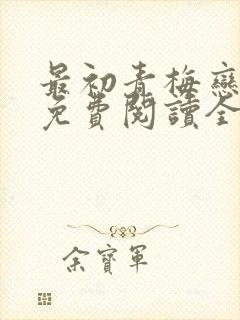 最初青梅戀
免費閱讀全
余寶軍